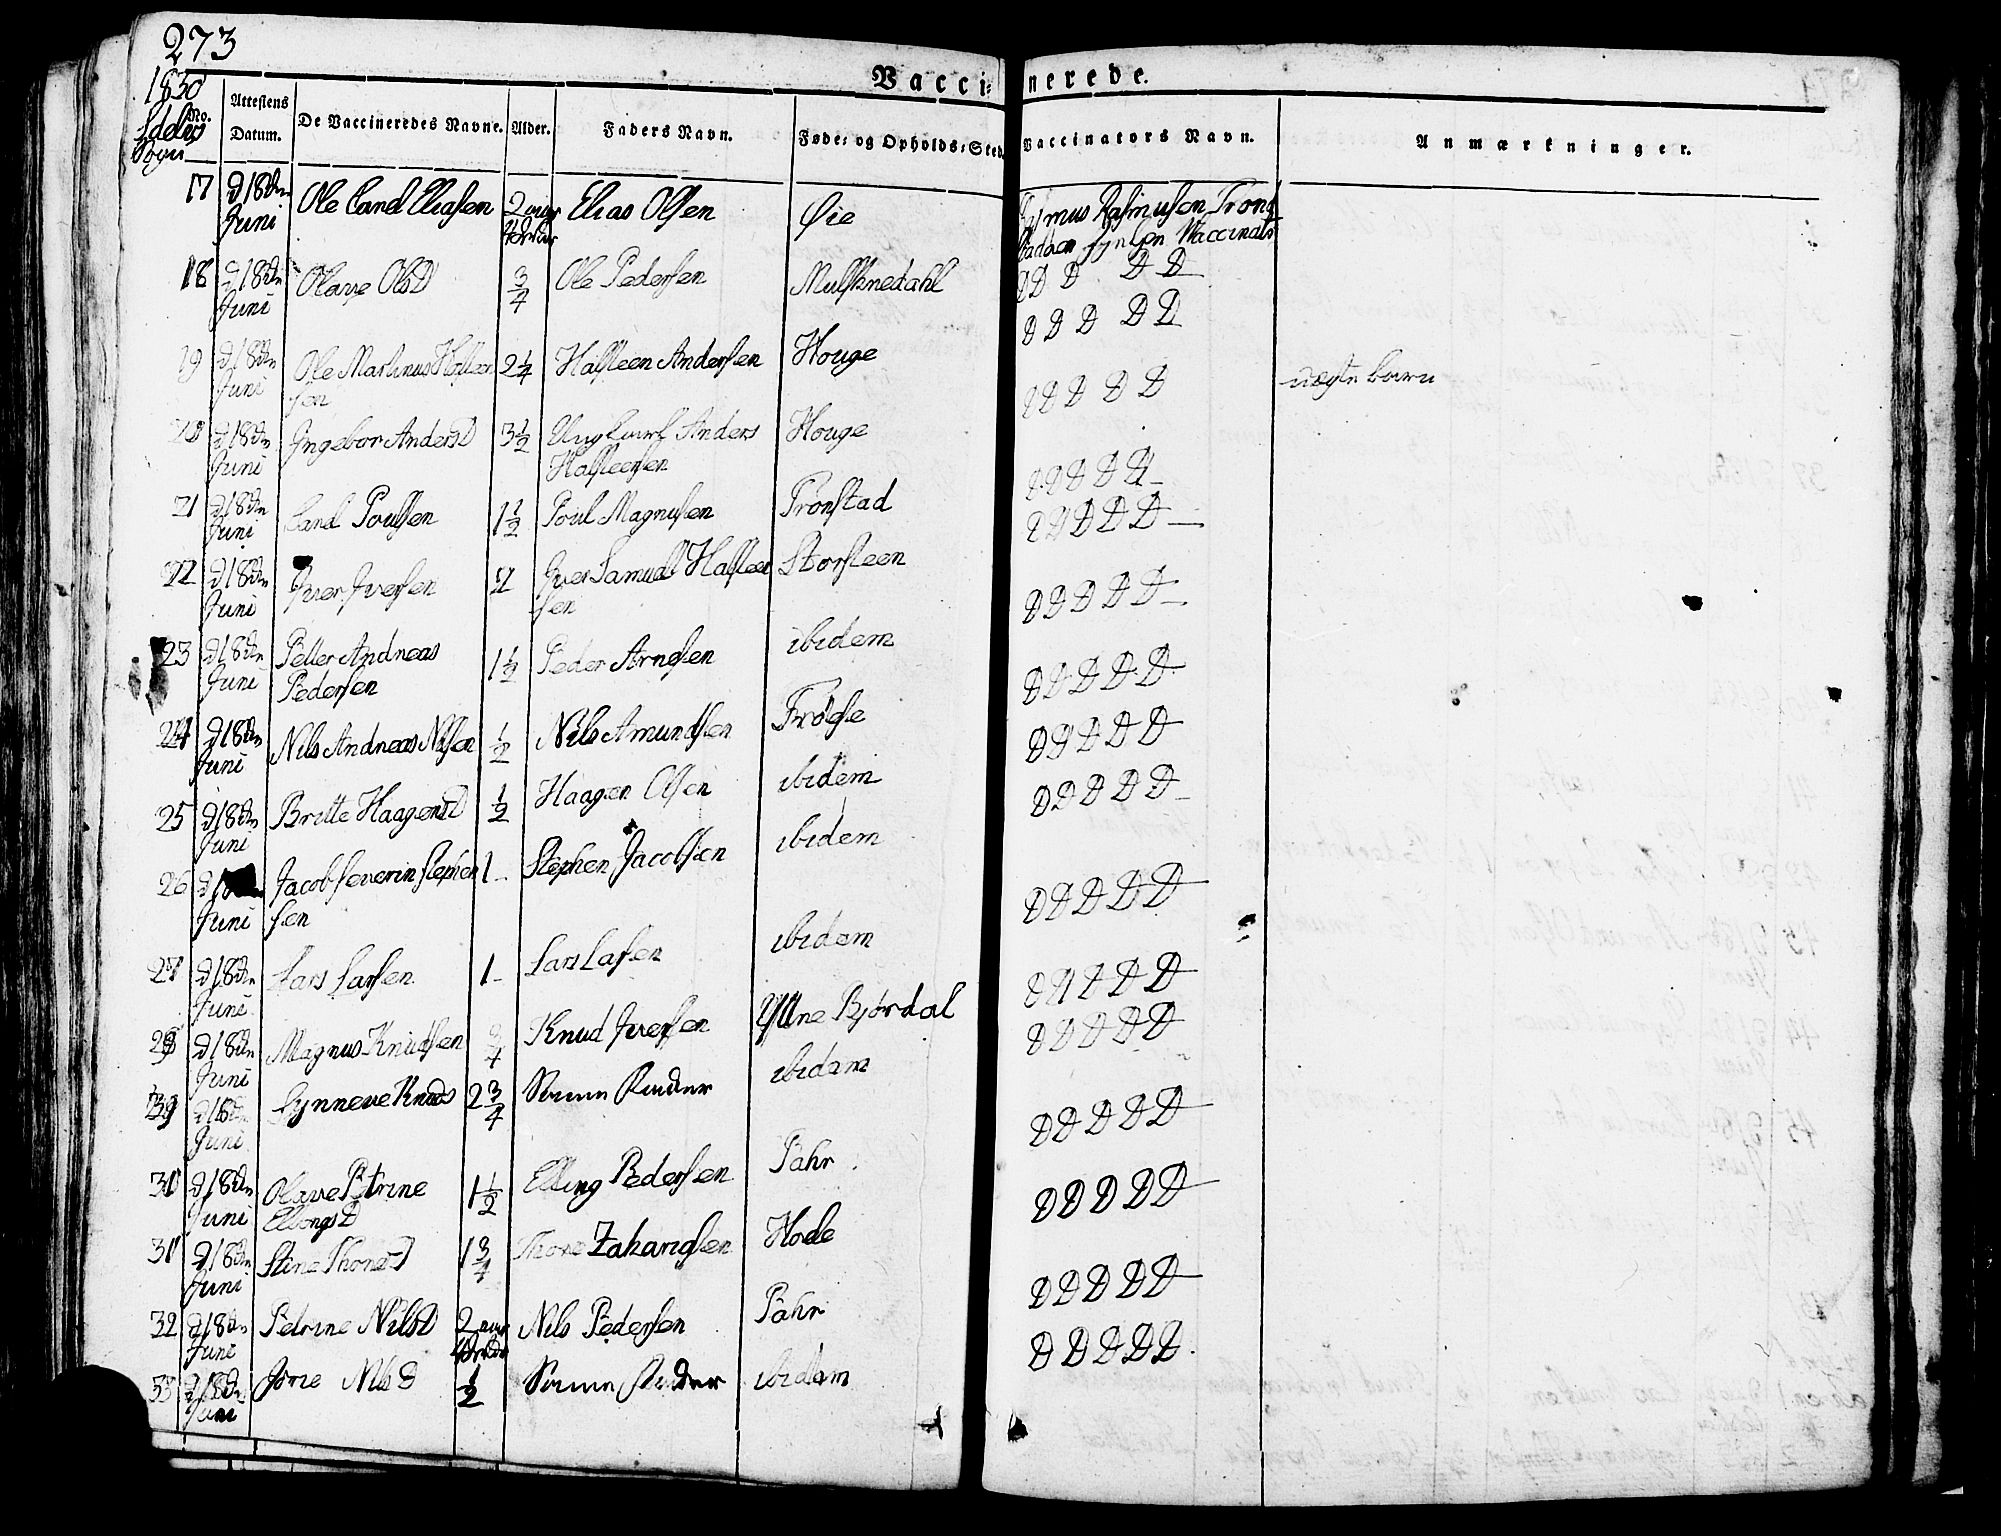 273
1830
Vaccinerede.
No. Attestens Datum. De Vaccineredes Navne. Alder. Faders Navn. Føde- og Opholds-Sted. Vaccinators Navn. Anmærkninger.
Sogn
17 d 18den Juni Ole Eliasen 2 Elias Olsen Øie Rasmus Rasmusen
18 d 18den Juni Olave OlsD 3/4 Ole Pedersen D D D D D
D D D D D
19 d 18den Juni Ole Martinus Halsteensen 2 1/4 Halsteen Andersen Houge
D D D D D uægte barn
20 d 18den Juni Ingebor AndersD 3 1/2 Ungkarl Anders Halsteensen Houge
D D D D D
21 d 18den Juni Poulsen 1 1/2 Poul Magnusen Tronstad D D D D D
22 d 18den Juni Iver Iversen Iver Samuel Halsteensen Storsteen
D D D D D
23 d 18den Juni Petter Andreas Pedersen 1 1/2 Peder Arnesen ibidem
D D D D D
24 d 18den Juni Nils Andreas Nilsen 1/2 Nils Amundsen Frøise
D D D D D
25 d 18den Juni Britte HaagensD 1/2 Haagen Olsen ibidem D D D D D
26 Juni Jacob Severin Stephensen 1 Stephen Jacobsen ibidem
D D D D D
27 d 18den Juni Lars Larsen 1 Lars Lasen ibidem
D D D D D
28 d 18den Juni Magnus Knudsen 3/4 Knud Iversen Yttne Bjørdal D D D D D
d 18den Juni Synneve KnudsD 2 3/4 Samme Fader ibidem
D D D D D
d 18den Juni Olave Petrine EllingsD 1 1/2 Elling Pedersen Pahr
D D D D D
31 d 18den Juni Stine ThoreD 1 3/4 Thore Zakariasen Hode
D D D D D
32 d 18den Juni Petrine NilsD 2 Nils Pedersen Pahr
D D D D D
33 d 18den Juni NilsD 1/2 Samme Fader ibidem